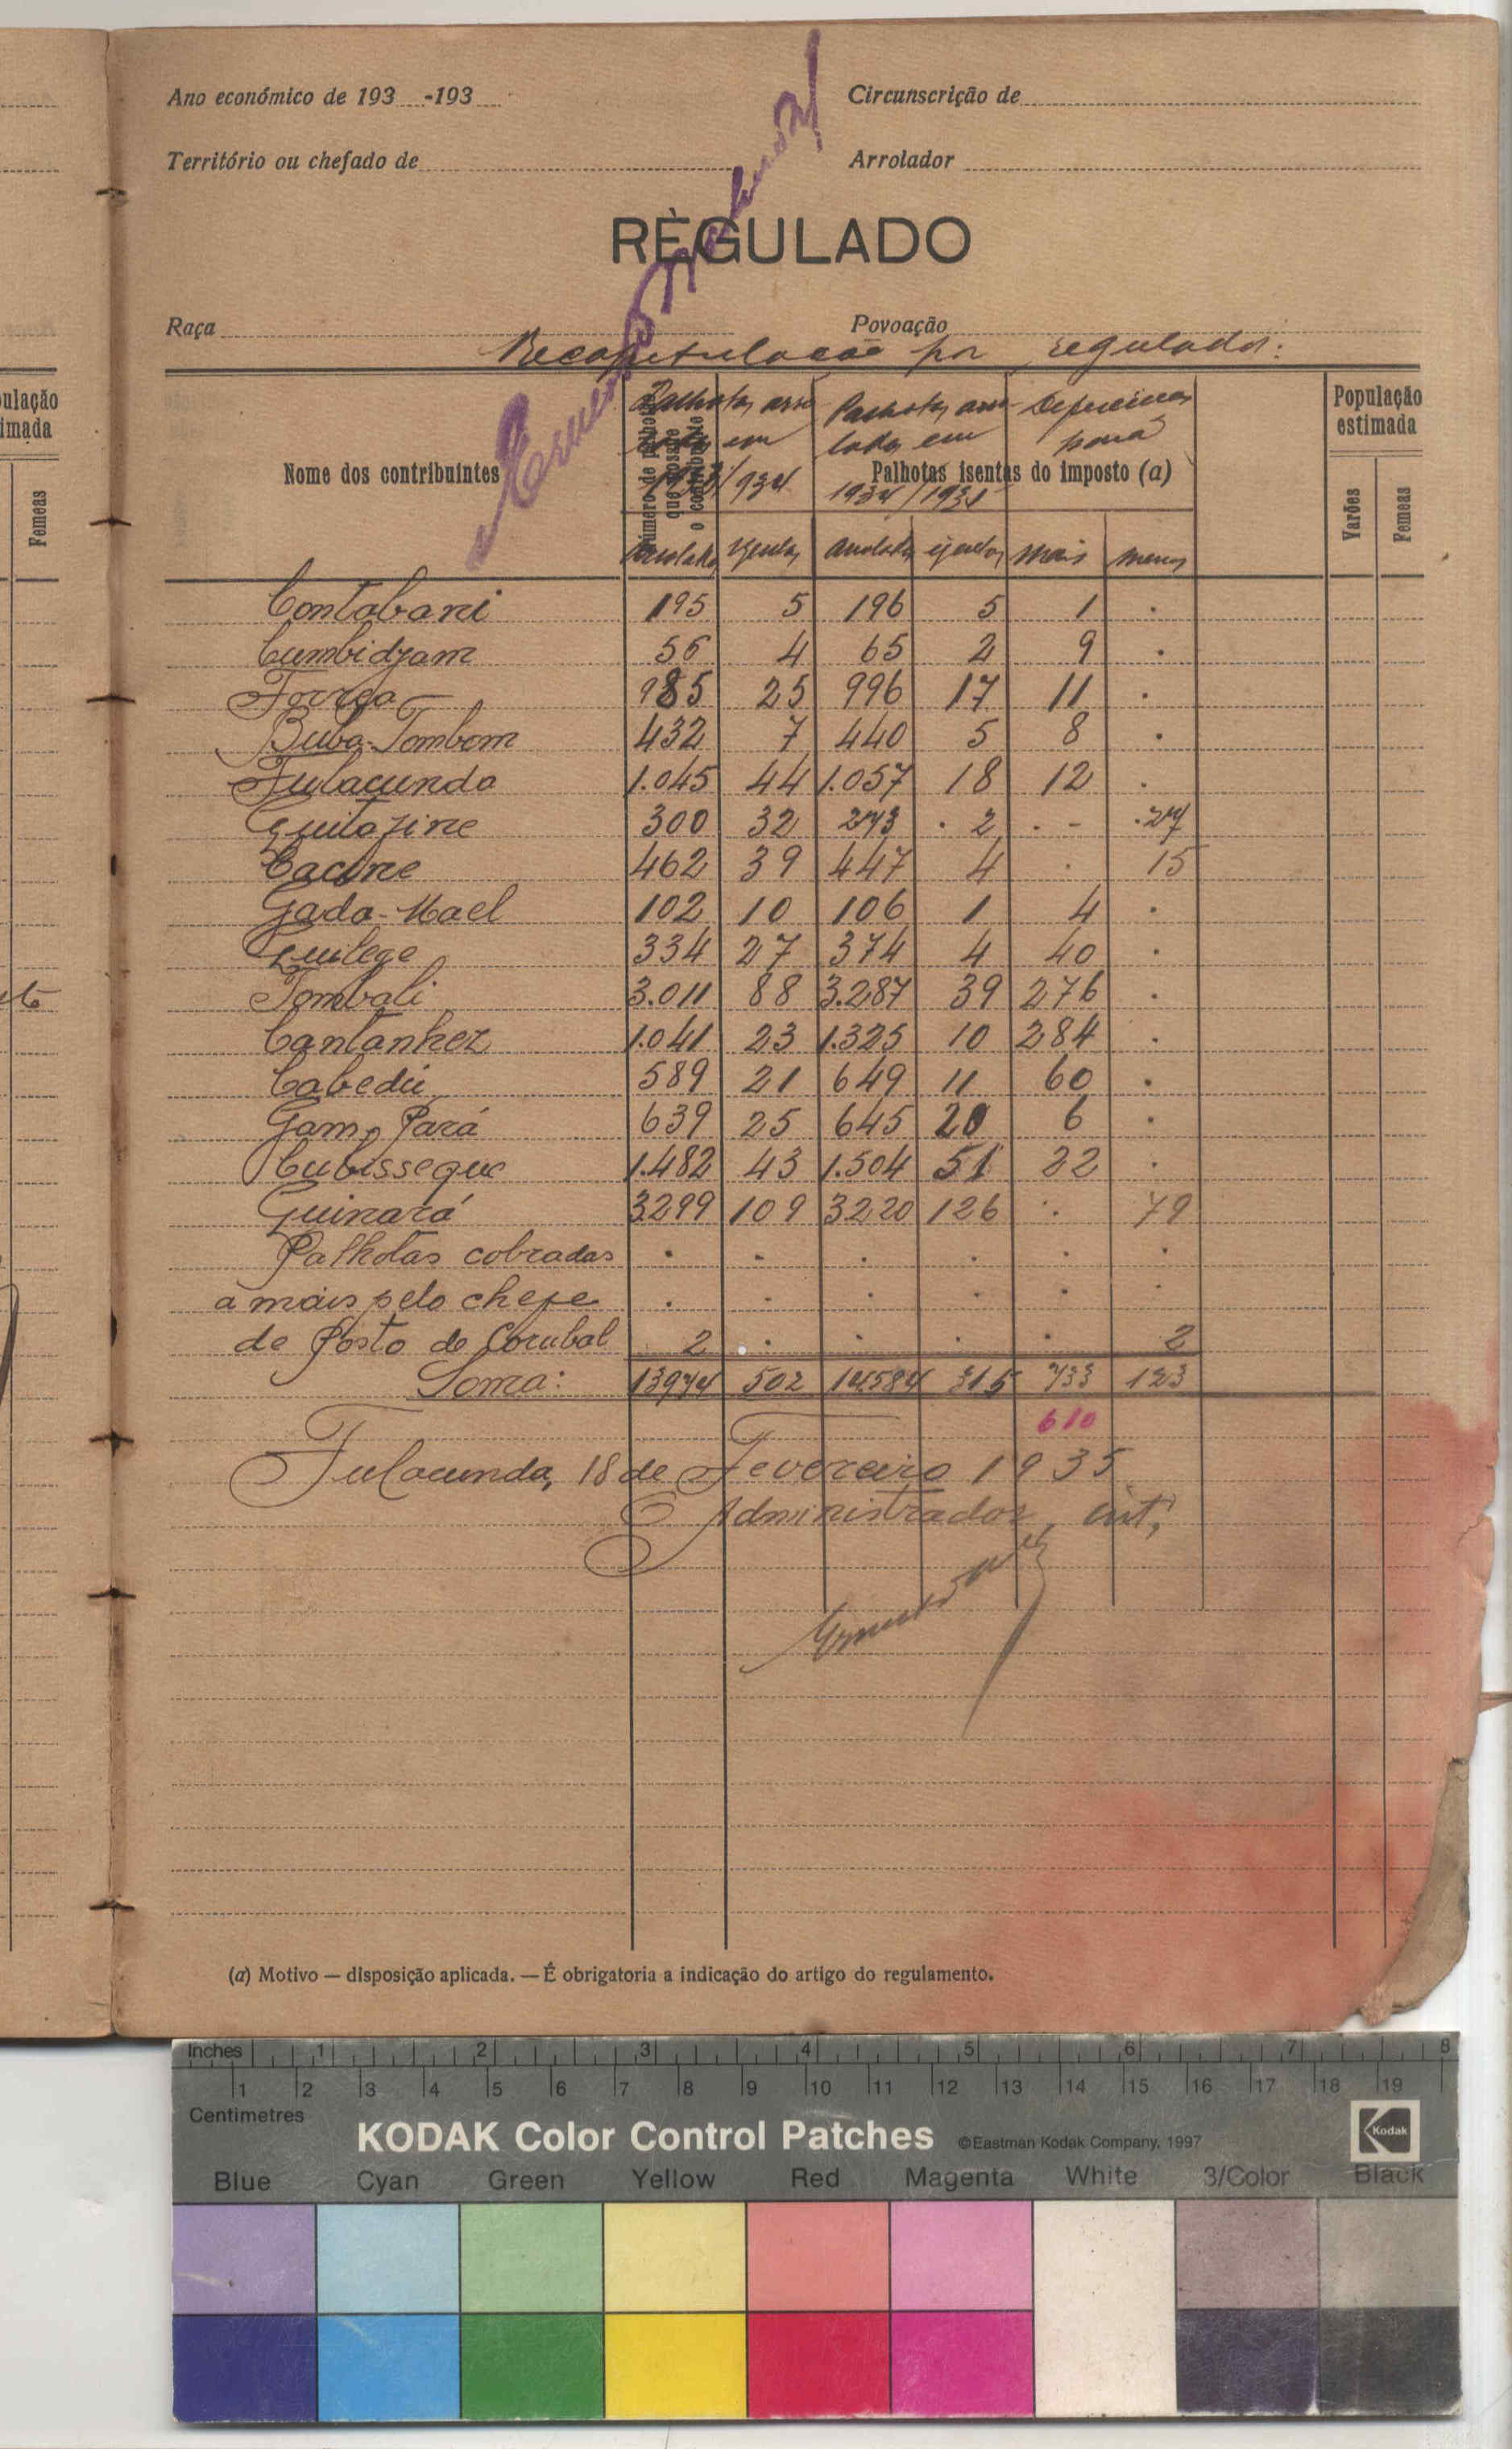 Ano económico de 193 -193
Circunscrição de
Território ou chefado de
Arrolador
RÈGULADO
Raça
Povoação
Recapitulacão por regulados:
ulação
imada
Femeas
Nome dos contribuintes
Número de palhotas que possue o contribuinte
Palhotas isentas do imposto (a)
População estimada
Varões
Femeas
Palhotas arro
em
1933/934
Palhotas arro-
ladas em
1934/1935
Diferencas
para
arroladas isentas arroladas isentas mais menos
Contabani 195 5 196 5 1 .
Cumbidjam 56 4 65 2 9 .
Forrea 985 25 996 17 11 .
Buba-Tombom 432 7 440 5 8 .
Fulacunda 1.045 44 1.057 18 12 .
Quitafine 300 32 273 . 2 . - .27
Cacine 462 39 447 4 . 15
Gada-Mael 102 10 106 1 4 .
Guilege 334 27 374 4 40 .
Tombali 3.011 88 3.287 39 276 .
Cantanhez 1.041 23 1.325 10 284 .
Cabedú 589 21 649 11 60 .
Gam, Pará 639 25 645 20 6 .
Cubisseque 1.482 43 1.504 51 22 .
Guinará 3299 109 3220 126 . 79
Palhotas cobradas . . . . . .
a mais pelo chefe . . . . . .
de Posto de Corubal 2 . . . . 2
Soma: 13974 502 14584 315 733 123
610
Fulacunda, 18 de Fevereiro 1935
O Administrador, int,
Ernesto
(a) Motivo — disposição aplicada. — É obrigatoria a indicação do artigo do regulamento.
Inches 1 2 3 4 5 6 7 8
1 2 3 4 5 6 7 8 9 10 11 12 13 14 15 16 17 18 19
Centimetres
KODAK Color Control Patches ©Eastman Kodak Company, 1997
Kodak
Blue Cyan Green Yellow Red Magenta White 3/Color Black